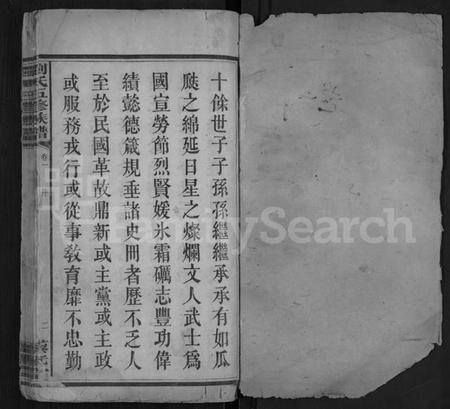 十餘世子子孫孫繼繼承承有如瓜
瓞之綿延日星之燦爛文人武士爲
國宣勞節烈賢媛氷霜礪志豐功偉
績懿德箴規垂諸史冊者歷不乏人
至於民國革故鼎新或主黨或主政
或服務戎行或從事敎育靡不忠勤
劉氏五修族譜
卷
二
FamilySearch